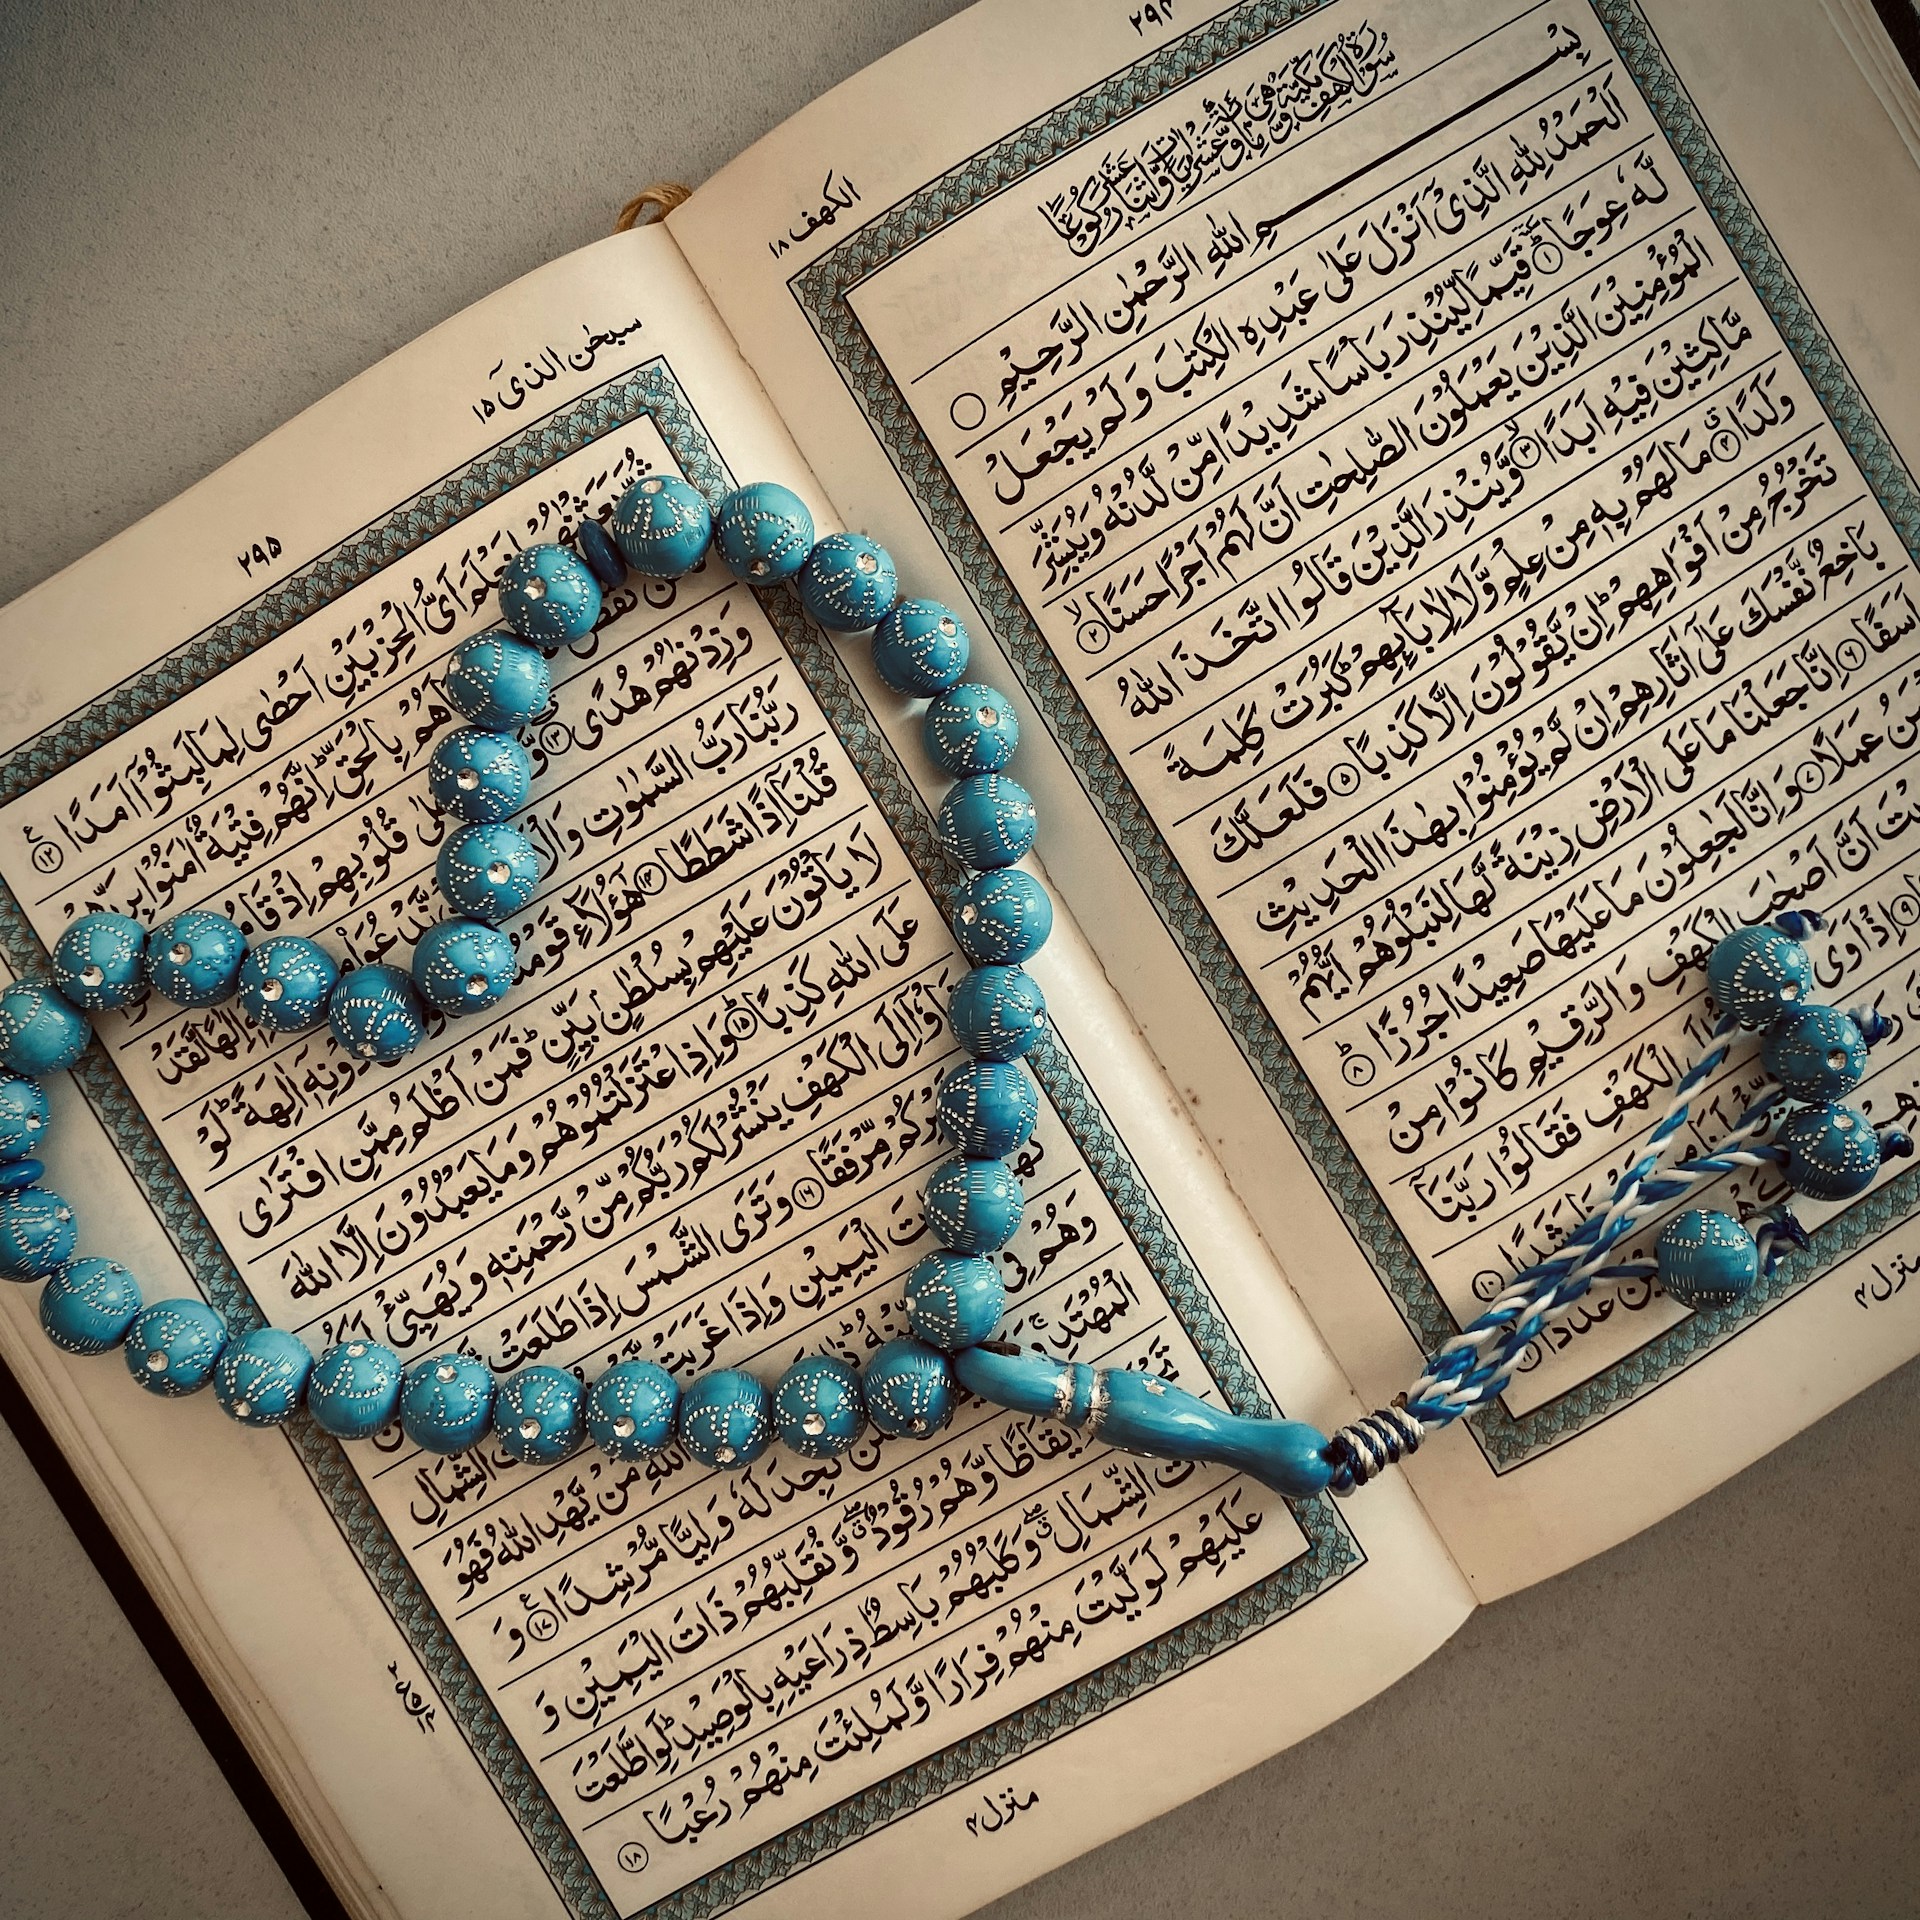 الكهف ١٨
سُوْرَةُ الْكَهْفِ مَكِّيَّةٌ
بِسْمِ اللّٰهِ الرَّحْمٰنِ الرَّحِيْمِ
اَلْحَمْدُ لِلّٰهِ الَّذِیْۤ اَنْزَلَ عَلٰی عَبْدِهِ الْكِتٰبَ وَلَمْ یَجْعَلْ
لَّهٗ عِوَجًا ۱ قَیِّمًا لِّیُنْذِرَ بَاْسًا شَدِیْدًا مِّنْ لَّدُنْهُ وَیُبَشِّرَ
الْمُؤْمِنِیْنَ الَّذِیْنَ یَعْمَلُوْنَ الصّٰلِحٰتِ اَنَّ لَهُمْ اَجْرًا حَسَنًا ۲
مَّاكِثِیْنَ فِیْهِ اَبَدًا ۳ وَّیُنْذِرَ الَّذِیْنَ قَالُوا اتَّخَذَ اللّٰهُ
وَلَدًا ۴ مَا لَهُمْ بِهٖ مِنْ عِلْمٍ وَّلَا لِاٰبَآىِٕهِمْ كَبُرَتْ كَلِمَةً
تَخْرُجُ مِنْ اَفْوَاهِهِمْ اِنْ یَّقُوْلُوْنَ اِلَّا كَذِبًا ۵ فَلَعَلَّكَ
بَاخِعٌ نَّفْسَكَ عَلٰۤی اٰثَارِهِمْ اِنْ لَّمْ یُؤْمِنُوْا بِهٰذَا الْحَدِیْثِ
اَسَفًا ۶ اِنَّا جَعَلْنَا مَا عَلَی الْاَرْضِ زِیْنَةً لَّهَا لِنَبْلُوَهُمْ اَیُّهُمْ
عَمَلًا ۷ وَاِنَّا لَجٰعِلُوْنَ مَا عَلَیْهَا صَعِیْدًا جُرُزًا ۸
اَنَّ اَصْحٰبَ الْكَهْفِ وَالرَّقِیْمِ كَانُوْا مِنْ
۹ اِذْ اَوَی الْكَهْفِ فَقَالُوْا رَبَّنَاۤ
رَشَدًا ۱۰
عَدَدًا ۱۱
منزل ۴
سبحٰن الذیٓ ۱۵
۲۹۵
اَیُّ الْحِزْبَیْنِ اَحْصٰی لِمَا لَبِثُوْۤا اَمَدًا ۱۲
بِالْحَقِّ اِنَّهُمْ فِتْیَةٌ اٰمَنُوْا
وَزِدْنٰهُمْ هُدًی ۱۳ قُلُوْبِهِمْ اِذْ قَامُوْا
رَبُّنَا رَبُّ السَّمٰوٰتِ
قُلْنَاۤ اِذًا شَطَطًا ۱۴ هٰۤؤُلَآءِ قَوْمُنَا دُوْنِهٖۤ اٰلِهَةً لَوْ
لَا یَاْتُوْنَ عَلَیْهِمْ بِسُلْطٰنٍۭ بَیِّنٍ فَمَنْ اَظْلَمُ مِمَّنِ افْتَرٰی
عَلَی اللّٰهِ كَذِبًا ۱۵ وَاِذِ اعْتَزَلْتُمُوْهُمْ وَمَا یَعْبُدُوْنَ اِلَّا اللّٰهَ
فَاْوٗۤا اِلَی الْكَهْفِ یَنْشُرْ لَكُمْ رَبُّكُمْ مِّنْ رَّحْمَتِهٖ وَیُهَیِّئْ
مِّرْفَقًا ۱۶ وَتَرَی الشَّمْسَ اِذَا طَلَعَتْ
الْیَمِیْنِ وَاِذَا غَرَبَتْ الشِّمَالِ
وَهُمْ فِیْ اللّٰهِ مَنْ یَّهْدِ اللّٰهُ فَهُوَ
الْمُهْتَدِ تَجِدَ لَهٗ وَلِیًّا مُّرْشِدًا ۱۷ وَ
اَیْقَاظًا وَّهُمْ رُقُوْدٌ وَّنُقَلِّبُهُمْ ذَاتَ الْیَمِیْنِ وَ
الشِّمَالِ وَكَلْبُهُمْ بَاسِطٌ ذِرَاعَیْهِ بِالْوَصِیْدِ لَوِ اطَّلَعْتَ
عَلَیْهِمْ لَوَلَّیْتَ مِنْهُمْ فِرَارًا وَّلَمُلِئْتَ مِنْهُمْ رُعْبًا ۱۸
منزل ۴